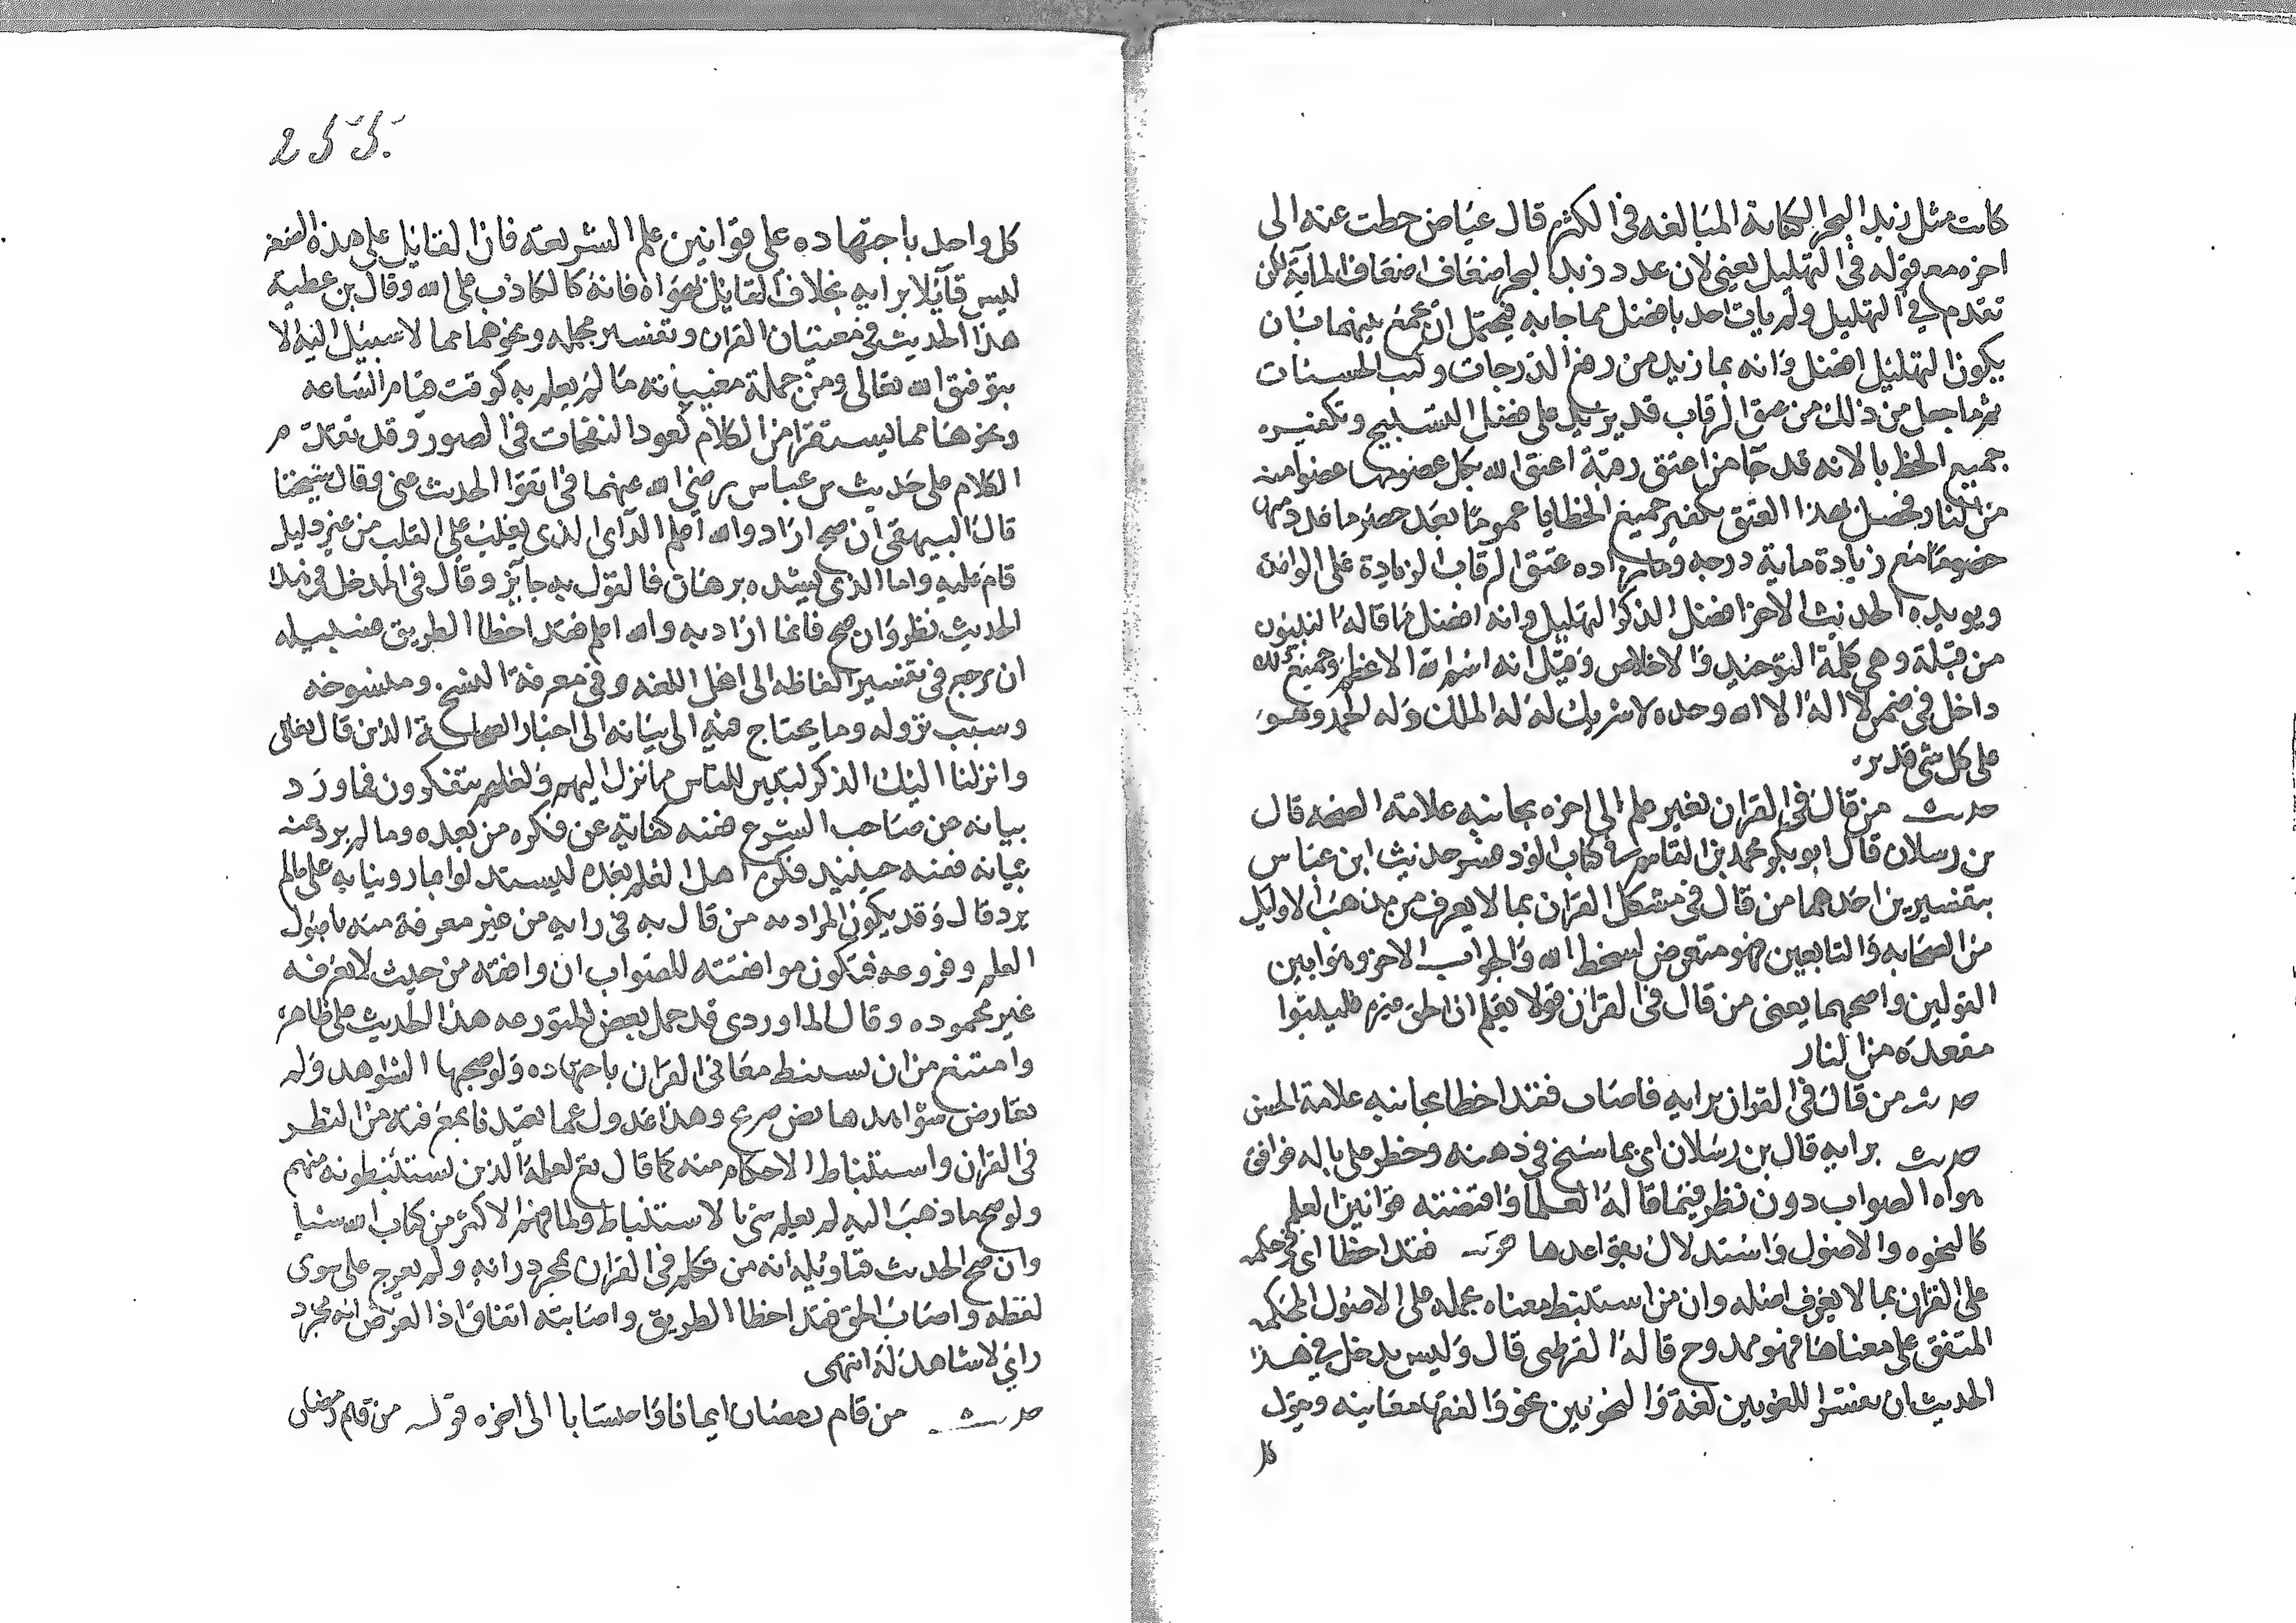 كانت مثل زبد البحر الكناية المبالغه في الكثره قال عياض حطت عنه الى
اخره مع قوله في التهليل يعني لان عدد زبد البحر اضعاف اضعاف الماية لكن
تقدم في التهليل ولم يات احد بافضل مما جا به فيحتمل ان يجمع بينهما بان
يكون التهليل افضل وانه بما زيد من رفع الدرجات وكتب الحسنات
ثم ما جعل من ذلك من عتق الرقاب قد يزيد على فضل التسبيح وتكفيره
جميع الخطايا لانه قد جا من اعتق رقبة اعتق الله بكل عضو منها عضوا منه
من النار فحصل بهذا العتق تكفير جميع الخطايا عموما بعد حصر ما عدد منها
خصوصا مع زيادة ماية درجه وما زاده عتق الرقاب الزيادة على الواحدة
ويويده الحديث الاخر افضل الذكر التهليل وانه افضل ما قاله النبيون
من قبله وهي كلمة التوحيد والاخلاص وقيل انه اسم الله الاعظم وجميع ذلك
داخل في ضمن لا اله الا الله وحده لا شريك له له الملك وله الحمد وهو
على كل شي قدير.
حديث من قال في القران بغير علم الى اخره بجانبه علامة الصحه قال
بن رسلان قال ابو بكر محمد بن القاسم في كتاب الرد فسر حديث ابن عباس
بتفسيرين احدهما من قال في مشكل القران بما لا يعرف من مذهب الاوايل
من الصحابه والتابعين فهو متعرض لسخط الله والجواب الاخر وهو ابين
القولين واصحهما يعني من قال في القران قولا يعلم ان الحق غيره فليتبوا
مقعده من النار
حديث من قال في القران برايه فاصاب فقد اخطا بجانبه علامة الحسن
حديث برايه قال بن رسلان اي بما سنح في ذهنه وخطر على باله فوافق
هواه الصواب دون نظر فيما قاله العلما واقتضته قوانين العلم
كالنحوه والاصول واستدلال بقواعدها قوله فقد اخطا اي في حكمه
على القران بما لا يعرف اصله وان من استنبط معناه بحمله على الاصول المحكمه
المتفق على معناها فهو ممدوح قاله القرطبي قال وليس يدخل في هذا
الحديث ان يفسر اللغويين لغة والنحويين نحو والفقها معانيه ويقول
كل
كل واحد باجتهاده على قوانين علم الشريعة فان القايل على هذه الصفه
ليس قايلا برايه بخلاف القايل بهواه فانه كالكاذب على الله وقال بن عطية
هذا الحديث في مغيبات القران وتفسير مجمله ونحوهما مما لا سبيل اليه الا
بتوفيق الله تعالى ومن جملة مغيباته ما لم يعلم به كوقت قيام الساعه
ونحوها مما يستقرا من الكلام كعود النفخات في الصور وقد تقدم
الكلام على حديث بن عباس رضي الله عنهما في اتقوا الحديث عني وقال شيخنا
قال البيهقي ان صح اراد والله اعلم الراي الذي يغلب على القلب من غير دليل
قام عليه واما الذي يسنده برهان فالقول به جايز وقال في المدخل في هذا
الحديث نظر وان صح فانما اراد به والله اعلم فقد اخطا الطريق فسبيله
ان يرجع في تفسير الفاظه الى اهل اللغه وفي معرفة الناسخ ومنسوخه
وسبب نزوله وما يحتاج فيه الى بيانه الى اخبار الصحابة الذين قال تعالى
وانزلنا اليك الذكر لتبين للناس ما نزل اليهم ولعلهم يتفكرون فما ورد
بيانه عن صاحب الشرع ففيه كفاية عن فكره من بعده وما لم يرد عنه
بيانه ففيه حينيذ فكرة اهل العلم بعده ليستدلوا بما ورد بيانه على ما لم
يرد قال وقد يكون المراد به من قال به في رايه من غير معرفة منه باصول
العلم وفروعه فتكون موافقته للصواب ان وافقه من حيث لا يعرفه
غير محموده وقال الماوردي قد حمل بعض المتورعه هذا الحديث على ظاهره
وامتنع من ان يستنبط معاني القران باجتهاده ولو صحبها الشواهد ولم
يعارض شواهدها نص صريح وهذا عدول عما تعبدنا بمعرفته من النظر
في القران واستنباط الاحكام منه كما قال تع لعلمه الذين يستنبطونه منهم
ولو صح ما ذهب اليه لم يعلم شي بالاستنباط ولما فهم الاكثر من كتاب الله شيا
وان صح الحديث فتاويله انه من تكلم في القران بمجرد رايه ولم يعرج على سوى
لفظه واصاب الحق فقد اخطا الطريق واصابته اتفاق اذ الغرض انه مجرد
راي لا شاهد له انتهى
حديث من قام رمضان ايمانا واحتسابا الى اخره قوله من قام رمضان